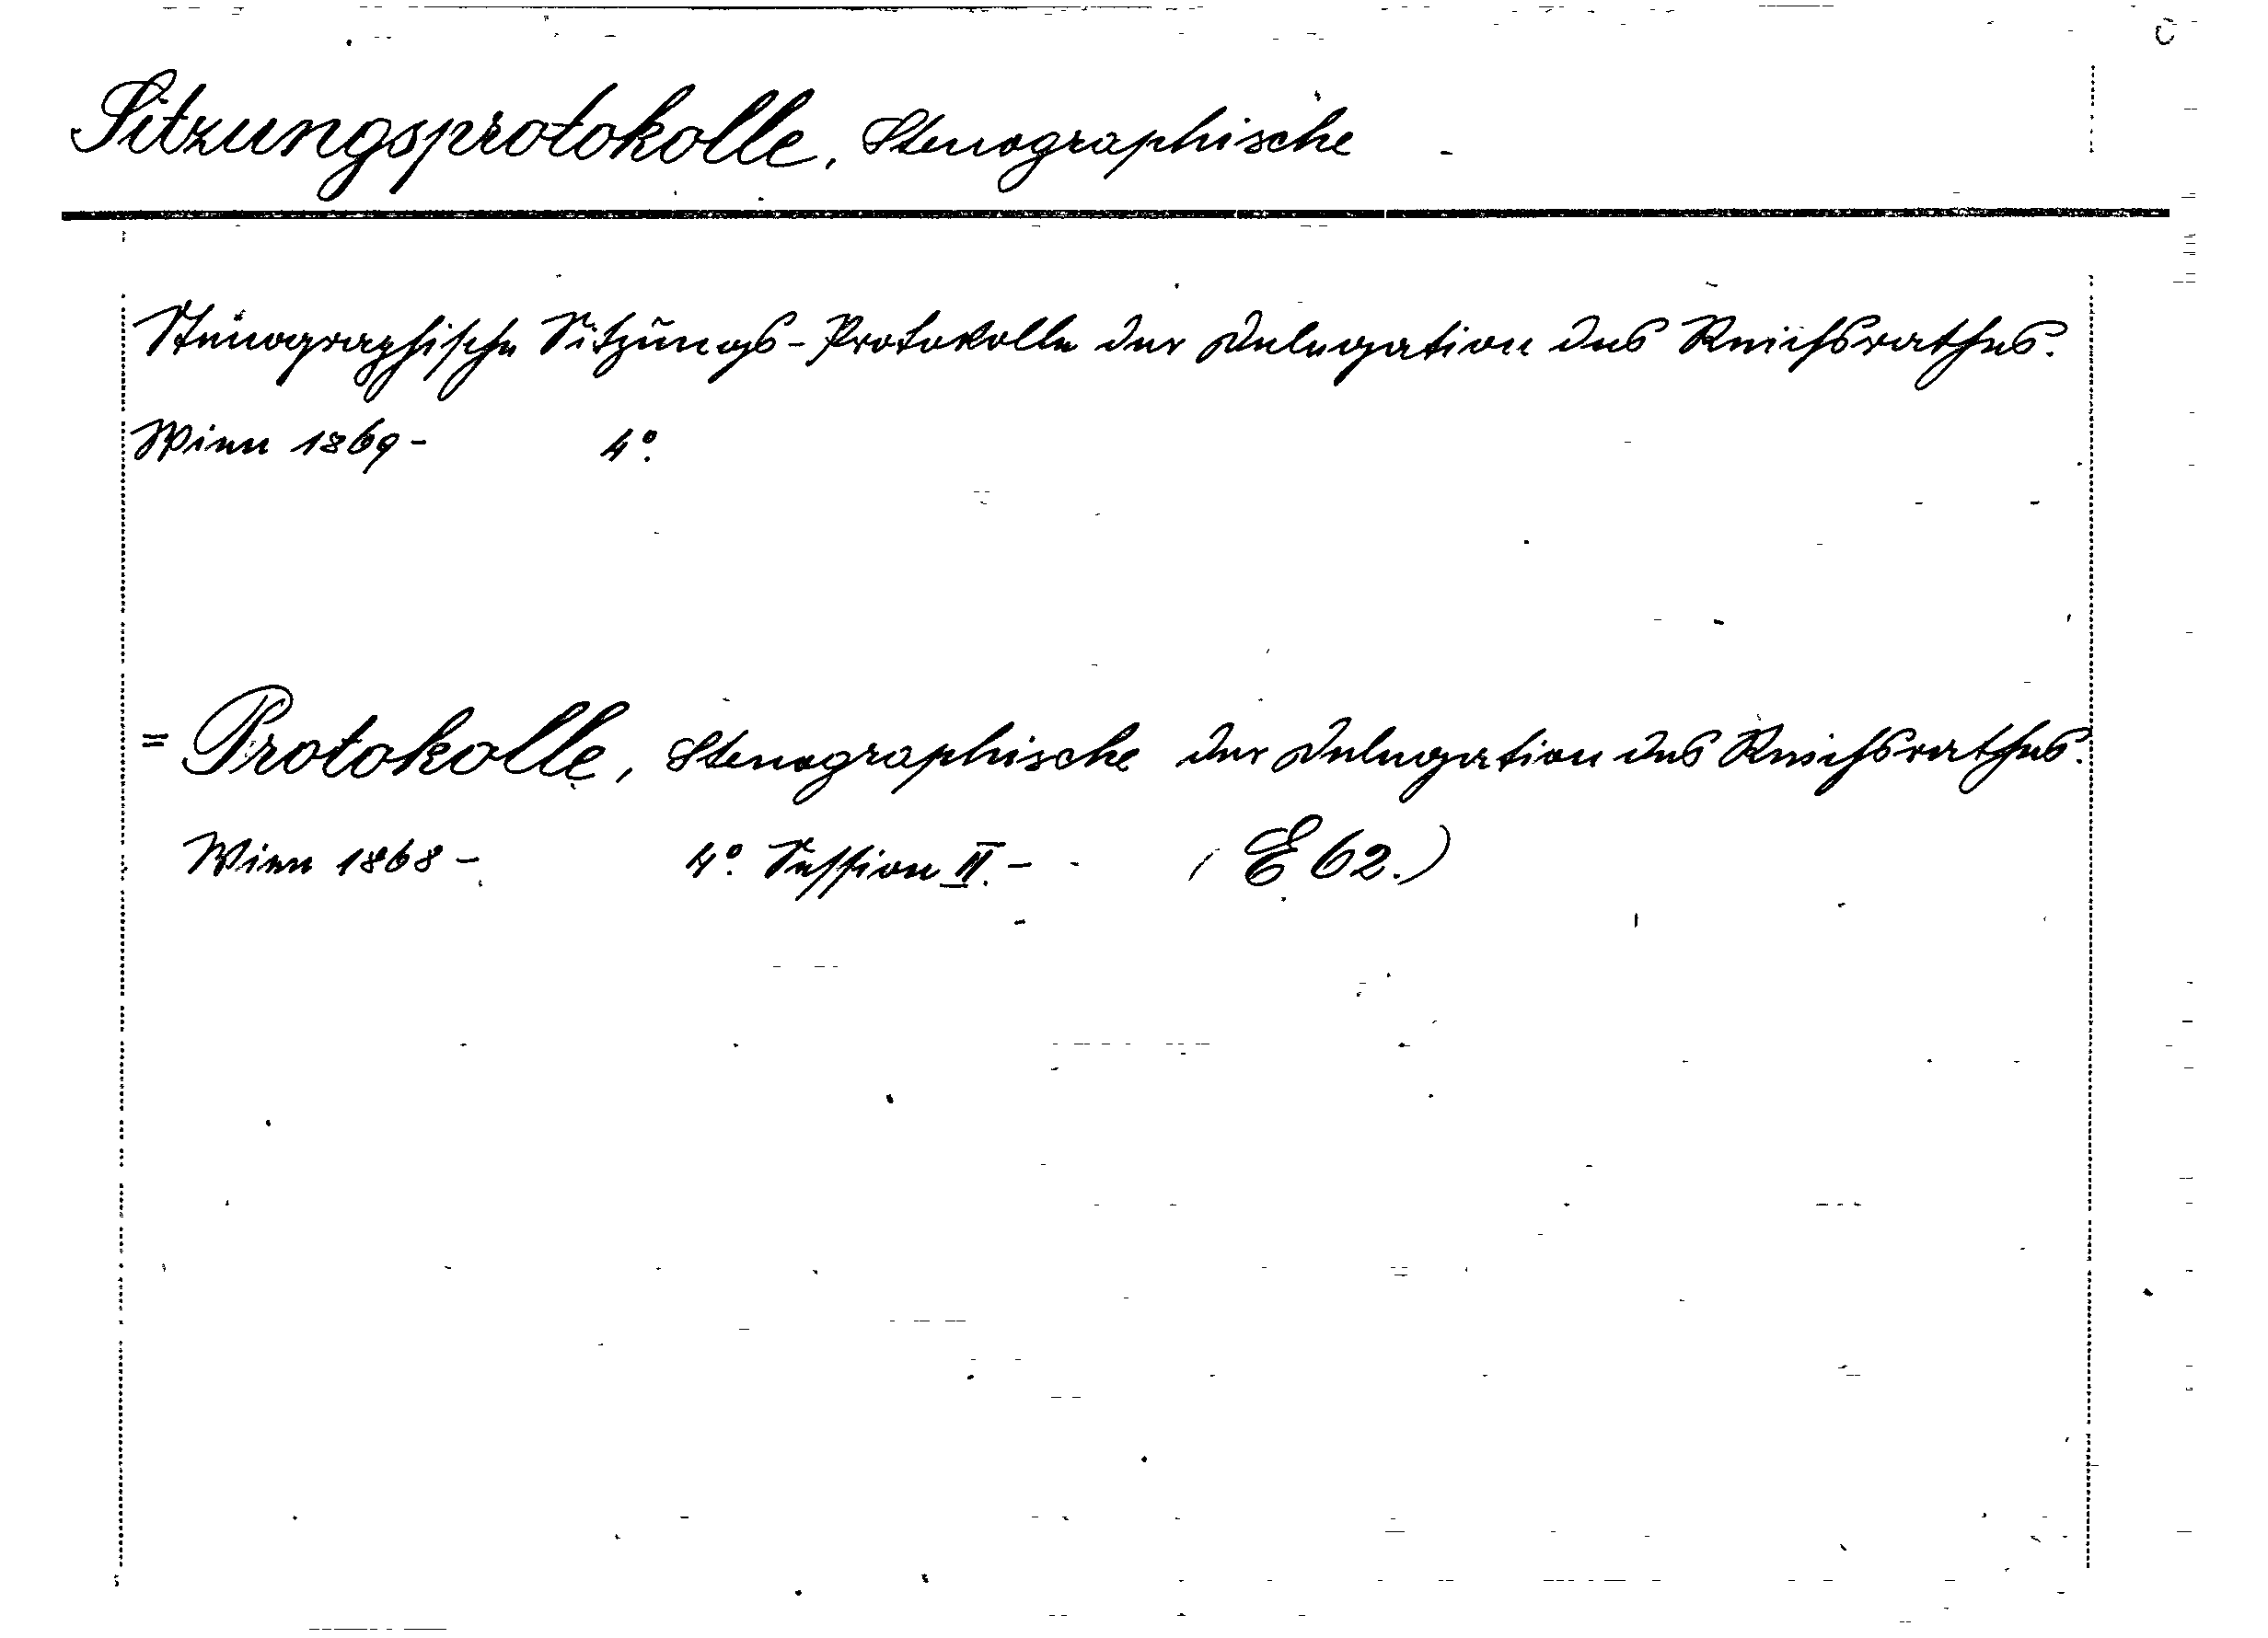 Sitzungsprotokolle, Stenographische
Stenographische Sitzungs-Protokolle der Delegation des Reichsrathes.
Wien 1869- 4°.
= Protokolle, Stenographische der Delegation des Reichsrathes.
Wien 1868- 4°. Session II.- (E 62.)